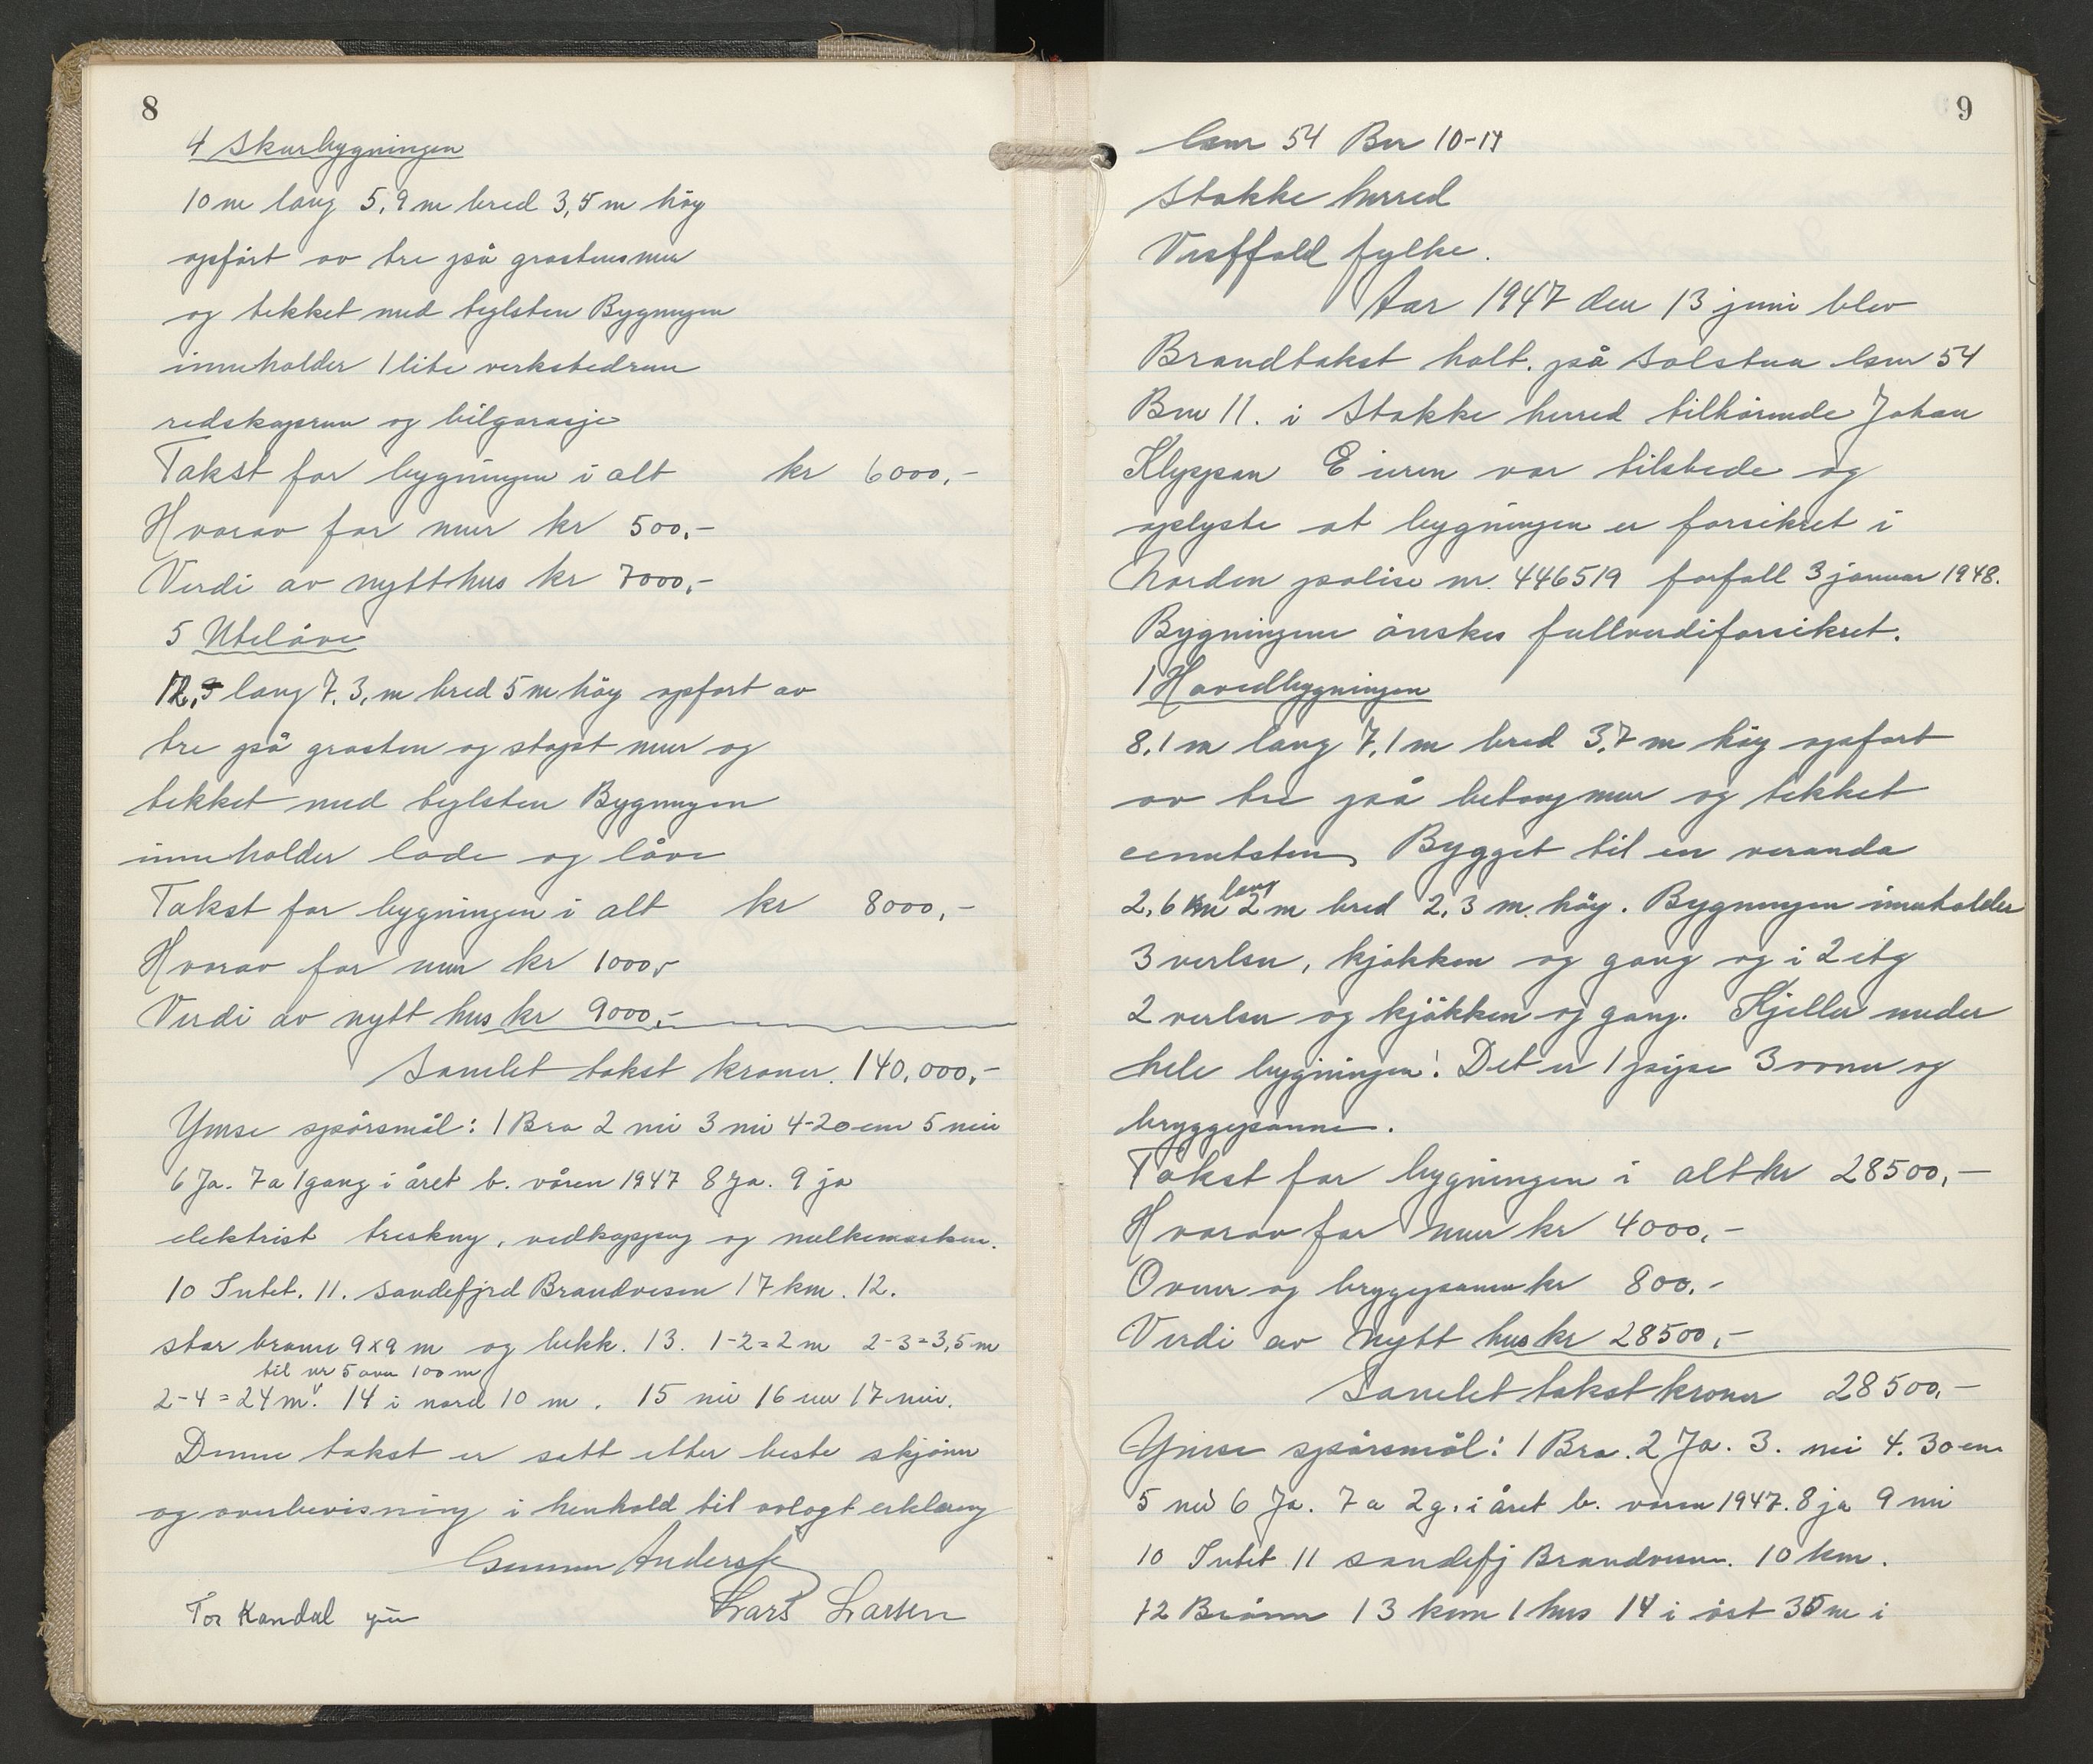 8
4 Skurbygningen
10 m lang 5,9 m bred 3,5 m høy
opført av tre på grastensmur
og tekket med teglsten Bygningen
inneholder 1 lite verkstedrum
redskapsrum og bilgarasje
Takst for bygningen i alt kr 6000,-
Hvorav for mur kr 500,-
Verdi av nytt hus kr 7000,-
5 Uteløve
12,5 lang 7,3, m bred 5 m høy opført av
tre på grasten og støpt mur og
tekket med teglsten Bygningen
inneholder lade og låve
Takst for bygningen i alt kr 8000,-
Hvorav for mur kr 1000,-
Verdi av nytt hus kr 9000,-
Samlet takst kroner. 140,000,-
Ymse spørsmål: 1 Bra 2 nei 3 nei 4-20 cm 5 nei
6 Ja. 7 a 1 gang i året b. våren 1947 8 Ja. 9 ja
elektrisk treskng, vedkapping og melkemaskin.
10 Intet. 11. Sandefjrd Brandvesen 17 km. 12.
stor brønn 9x9 m og bekk. 13. 1-2=2 m 2-3=3,5 m
til nr 5 over 100 m
2-4=24 m. 14 i nord 10 m. 15 nei 16 nei 17 nei.
Denne takst er satt etter beste skjønn
og overbevisning i henhold til avlagt erklæring
Gunnar Anderssen
Tor Kandal Lars Larsen
9
Gnr 54 Bnr 10-11
Stokke herred
Vestfold fylke.
Aar 1947 den 13 juni blev
Brandtakst holt. på Solstua Gnr 54
Bnr 11. i Stokke herred tilhørende Johan
Kleppan Eieren var tilstede og
oplyste at bygningen er forsikret i
Norden polise nr. 446519 forfall 3 januar 1948.
Bygningene ønskes fullverdiforsikret.
1 Hovedbygningen
8,1 m lang 7,1 m bred 3,7 m høy opført
av tre på betongmur og tekket
cementsten, Bygget til en veranda
lang
2,6 m 2 m bred 2,3 m. høy. Bygningen inneholder
3 verlser, kjøkken og gang og i 2 etg
2 verlser og kjøkken og gang. Kjeller under
hele bygningen! Det er 1 pipe 3 ovner og
bryggepanne.
Takst for bygningen i alt kr 28500,-
Hvorav for mur kr 4000,-
Ovner og bryggepanne kr 800,-
Verdi av nytt hus kr 28500,-
Samlet takst kroner 28500,-
Ymse spørsmål: 1 Bra. 2 Ja. 3. nei 4. 30 cm
5 nei 6 Ja. 7 a 2 g. i året b. våren 1947. 8 ja 9 nei
10 Intet 11 Sandefj Brandvesen. 10 km.
12 Brønn 13 kun 1 hus 14 i øst 35 m i